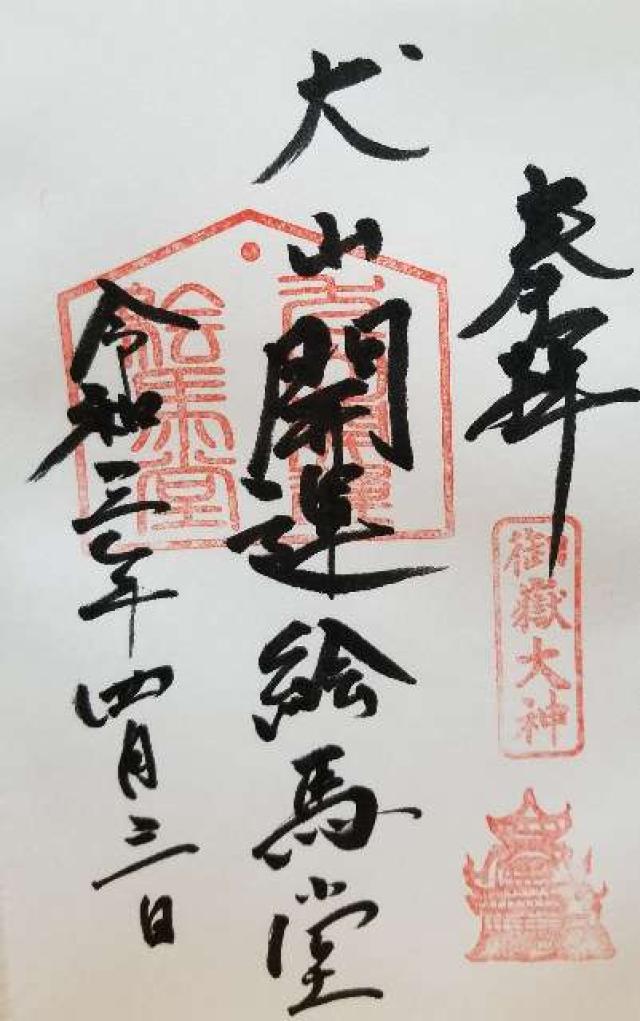 奉拝
御嶽大神
犬山開運絵馬堂
令和三年四月三日
絵馬堂